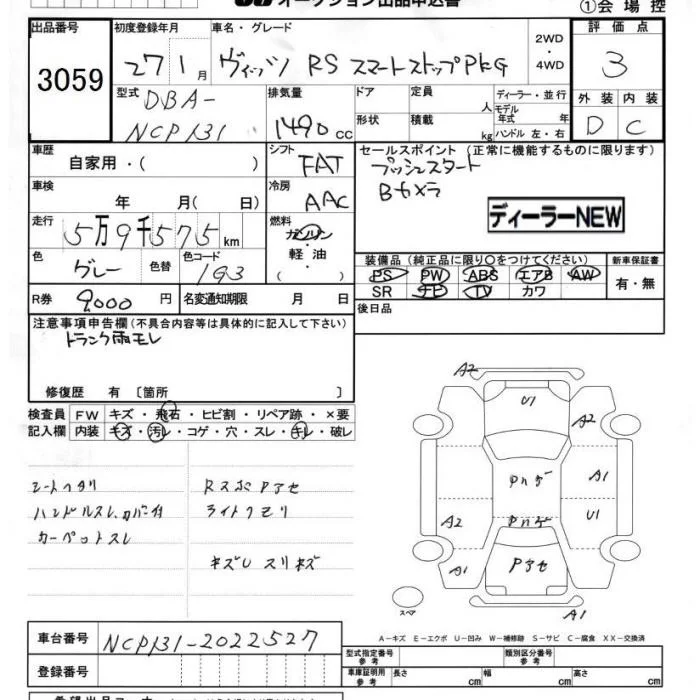 オークション出品申込書
①会場控
出品番号
3059
初度登録年月
27 1 月
車名・グレード
ヴィッツ RS スマートストップPKG
2WD
・
4WD
評価点
3
型式
DBA-
NCP131
排気量
1490 cc
ドア
形状
定員
人
積載
kg
ディーラー・並行
モデル年式 年
ハンドル 左・右
外装 内装
D C
車歴
自家用・( )
シフト
FAT
セールスポイント(正常に機能するものに限ります)
プッシュスタート
Bカメラ
ディーラーNEW
車検
年 月( 日)
冷房
AAC
走行
5万9千575km
燃料
ガソリン
・
軽油
( ・ )
色
グレー
色替
色コード
1G3
装備品(純正品に限り○をつけてください)
PS PW ABS エアB AW
SR ナビ TV カワ
新車保証書
有・無
R券
9,000 円
名変通知期限 月 日
後日品
注意事項申告欄(不具合内容等は具体的に記入して下さい)
トランク雨モレ
修復歴 有 〔箇所 〕
検査員
記入欄
FW キズ・飛石・ヒビ割・リペア跡・×要
内装 キズ・汚レ・コゲ・穴・スレ・キレ・破レ
シートヘタリ
ハンドルスレ、カバー付
カーペットスレ
Rスポイアセ
ライトクモリ
キズU スリキズ
A2
U1
A2
Pハゲ
A1
Pハゲ
U1
A2
A1
Pアセ
A1
A1
スペア
A-キズ E-エクボ U-凹み W-補修跡 S-サビ C-腐食 XX-交換済
車台番号
NCP131-2022527
登録番号
型式指定番号
参考
類別区分番号
参考
車庫証明用
参考
長さ cm 幅 cm 高さ cm